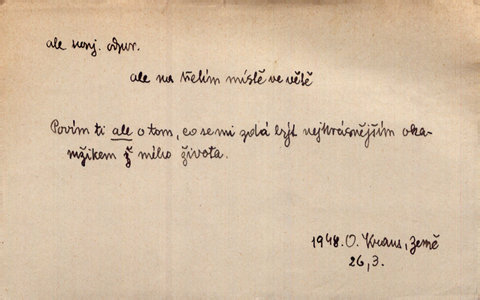 ale konj. odpor.
ale na třetím místě ve větě
Povím ti ale o tom, co se mi zdá býti nejkrásnějším oka-
mžikem z mého života.
1948. O. Kraus, Země
26,3.